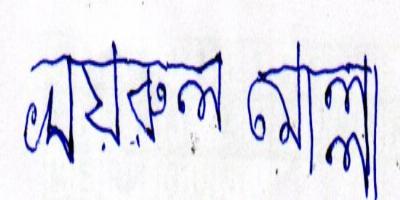 খায়রুল মোল্লা